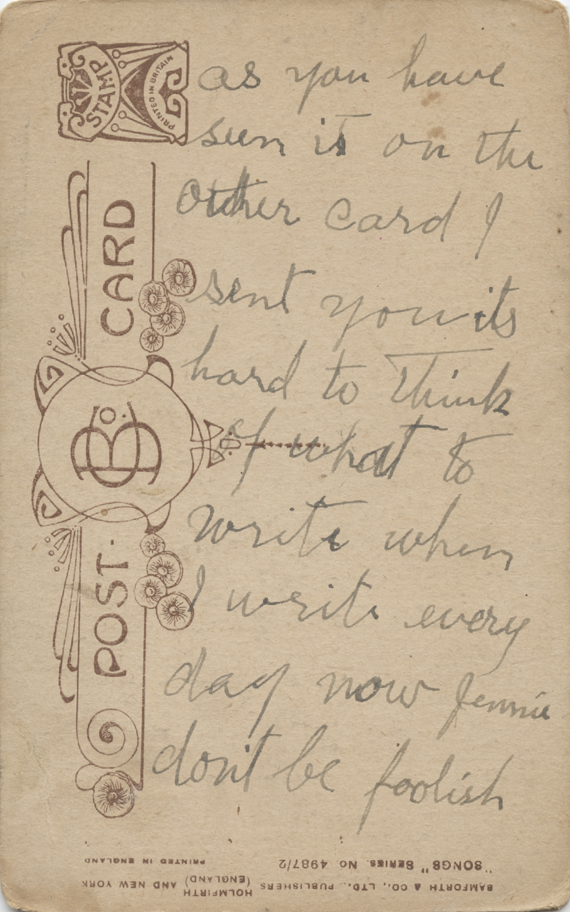 STAMP
PRINTED IN BRITAIN
POST CARD
B & Co.
as you have
seen it on the
other card I
sent you its
hard to think
of what to
write when
I write every
day now Jennie
don't be foolish
"SONGS" SERIES. No 4987/2
PRINTED IN ENGLAND
BAMFORTH & CO., LTD., PUBLISHERS HOLMFIRTH (ENGLAND) AND NEW YORK